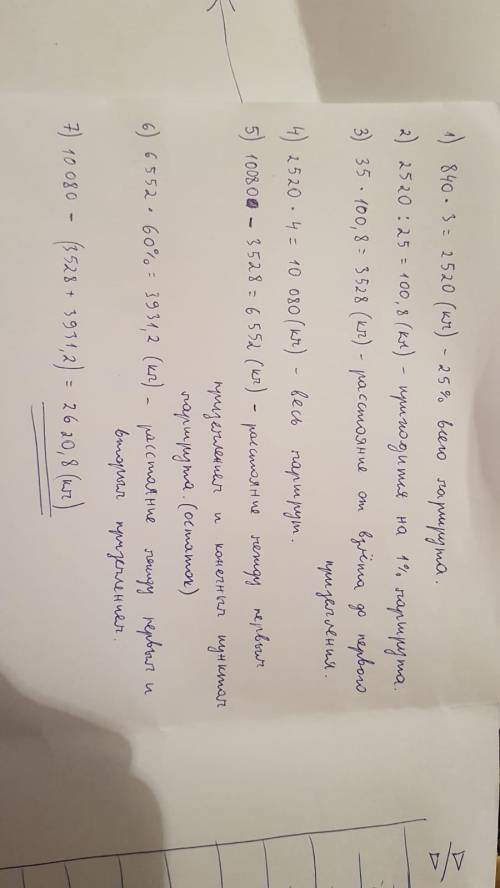 1) 840 · 3 = 2520 (км) – 25% всего маршрута.
2) 2520 : 25 = 100,8 (км) – приходится на 1% маршрута.
3) 35 · 100,8 = 3528 (км) – расстояние от взлёта до первого
приземления.
4) 2520 · 4 = 10 080 (км) – весь маршрут.
5) 10080 – 3528 = 6552 (км) – расстояние между первым
приземлением и конечным пунктом
маршрута. (остаток)
6) 6552 · 60% = 3931,2 (км) – расстояние между первым и
вторым приземлением.
7) 10 080 – (3528 + 3931,2) = 2620,8 (км)